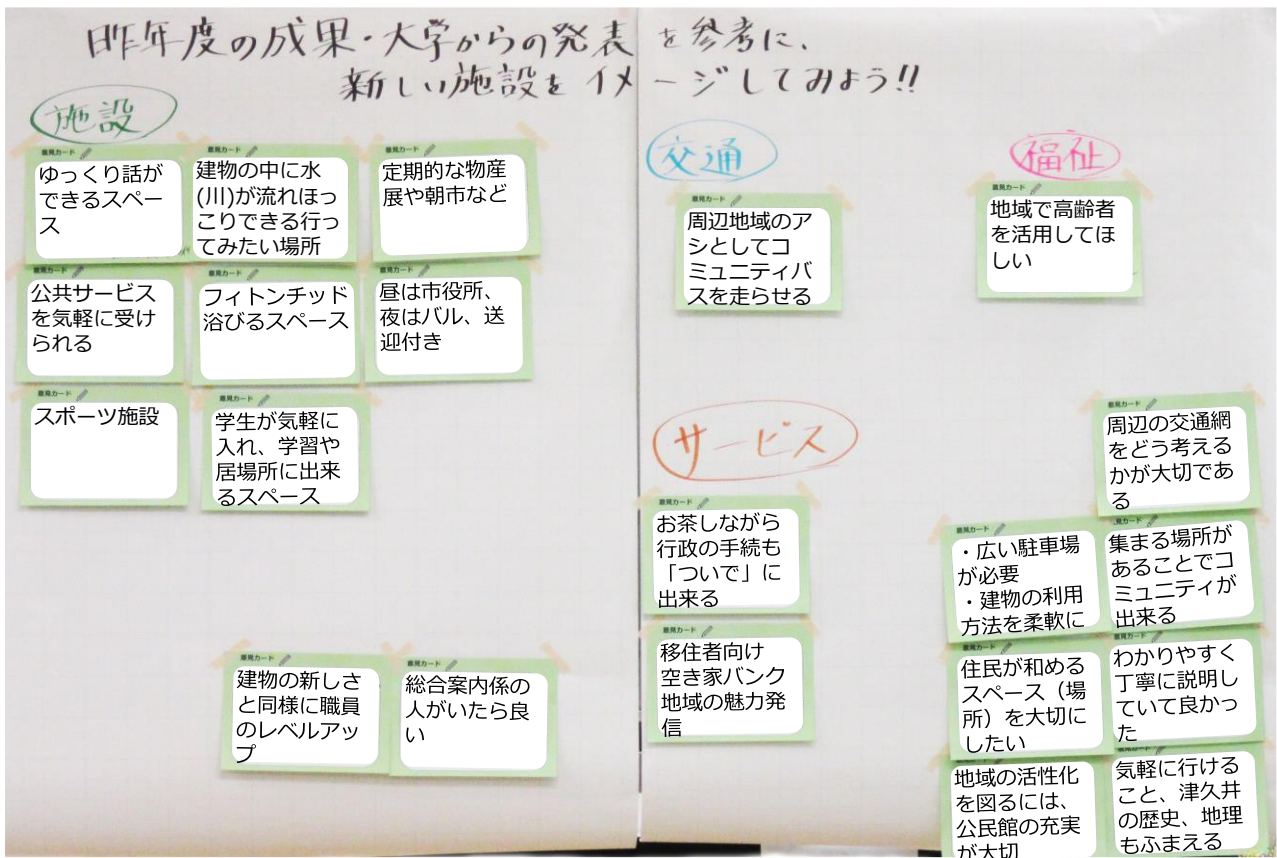 昨年度の成果・大学からの発表を参考に、
新しい施設をイメージしてみよう!!
施設
意見カード
ゆっくり話が
できるスペー
ス
意見カード
建物の中に水
(川)が流れほっ
こりできる行っ
てみたい場所
意見カード
定期的な物産
展や朝市など
意見カード
公共サービス
を気軽に受け
られる
意見カード
フィトンチッド
浴びるスペース
意見カード
昼は市役所、
夜はバル、送
迎付き
意見カード
スポーツ施設
意見カード
学生が気軽に
入れ、学習や
居場所に出来
るスペース
意見カード
建物の新しさ
と同様に職員
のレベルアッ
プ
意見カード
総合案内係の
人がいたら良
い
交通
意見カード
周辺地域のア
シとしてコ
ミュニティバ
スを走らせる
福祉
意見カード
地域で高齢者
を活用してほ
しい
サービス
意見カード
お茶しながら
行政の手続も
「ついで」に
出来る
意見カード
移住者向け
空き家バンク
地域の魅力発
信
意見カード
周辺の交通網
をどう考える
かが大切であ
る
意見カード
・広い駐車場
が必要
・建物の利用
方法を柔軟に
意見カード
集まる場所が
あることでコ
ミュニティが
出来る
意見カード
住民が和める
スペース（場
所）を大切に
したい
意見カード
わかりやすく
丁寧に説明し
ていて良かっ
た
地域の活性化
を図るには、
公民館の充実
が大切
意見カード
気軽に行ける
こと、津久井
の歴史、地理
もふまえる